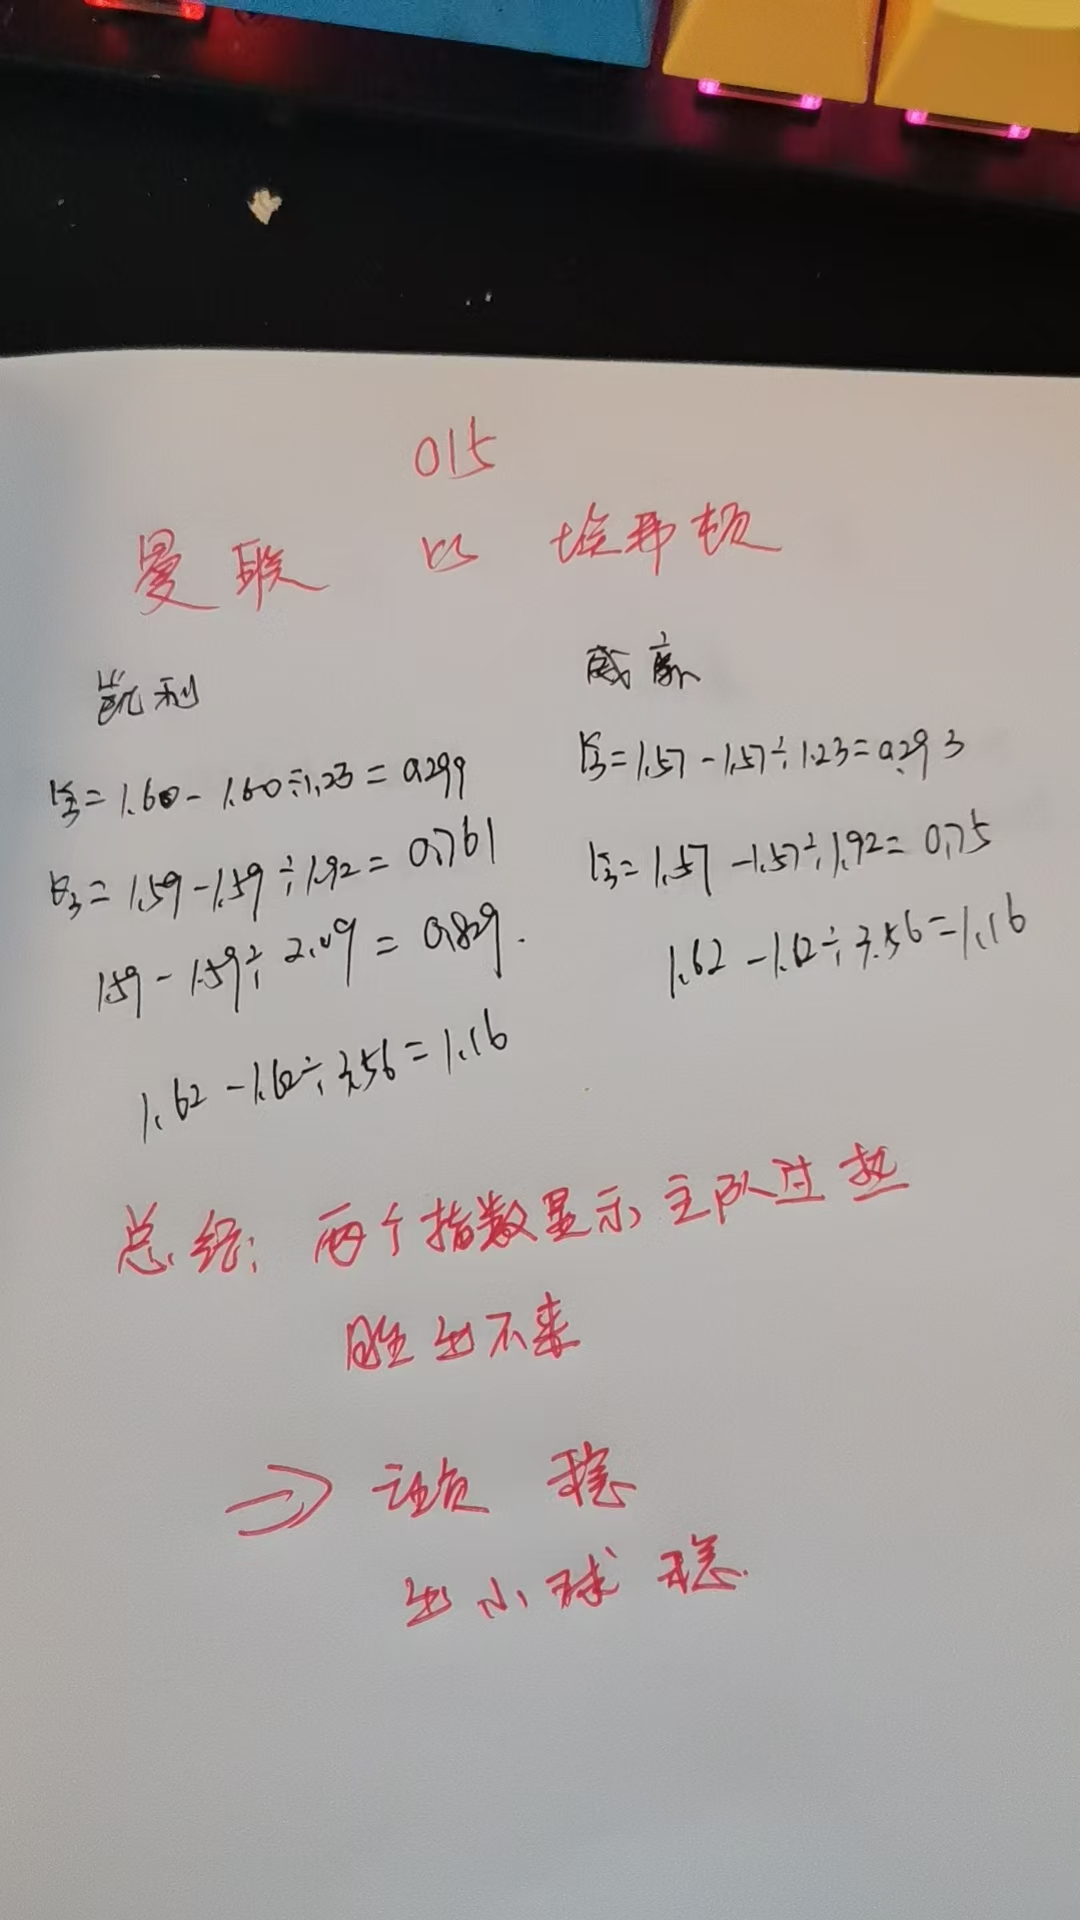 015
曼联 VS 埃弗顿
凯利
主=1.60-1.60÷1.23=0.299
主=1.59-1.59÷1.92=0.761
1.59-1.59÷2.09=0.829.
1.62-1.62÷3.56=1.16
威廉
主=1.57-1.57÷1.23=0.293
主=1.57-1.57÷1.92=0.75
1.62-1.62÷3.56=1.16
总结: 两个指数显示主队过热
胜出不来
⇒ 让负 稳
出小球 稳.